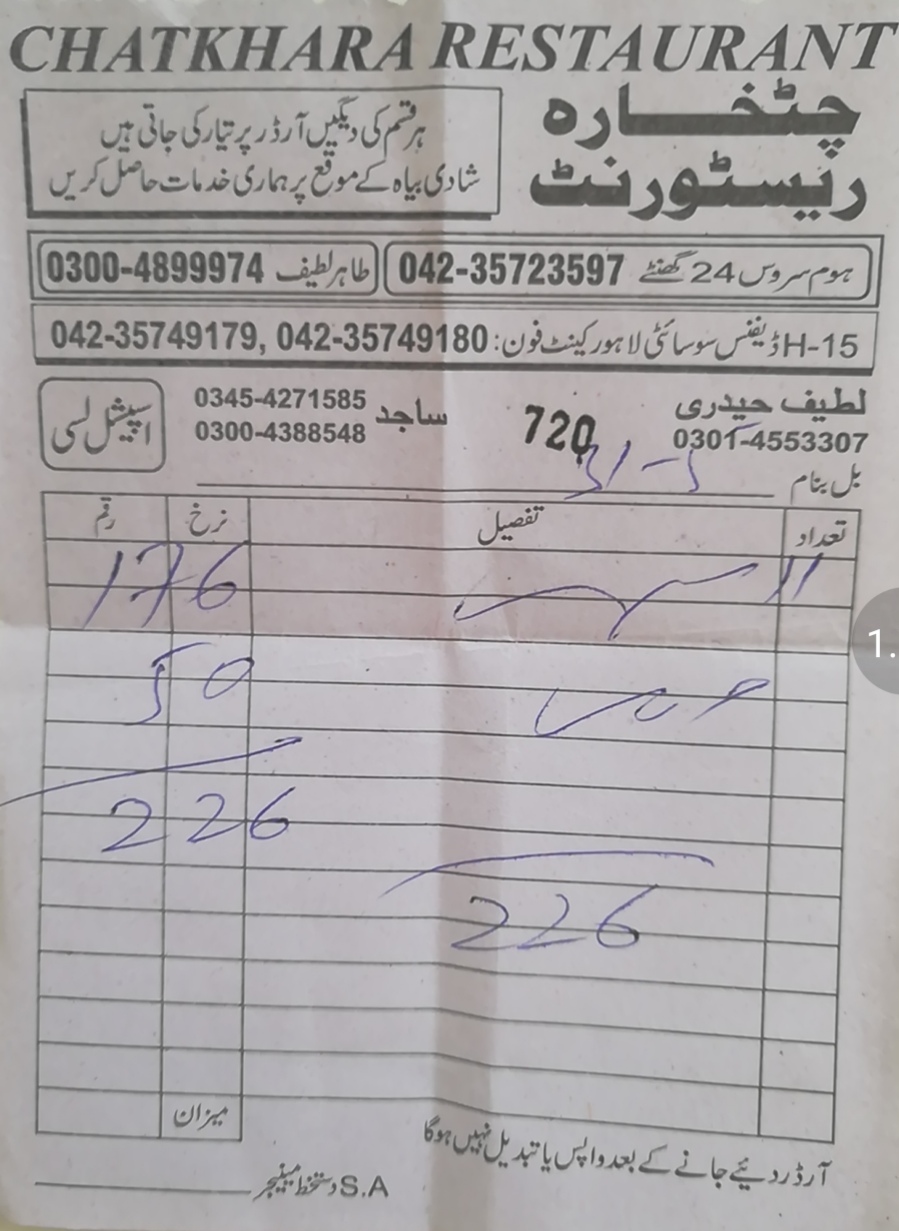 CHATKHARA RESTAURANT
چٹخارہ
ریسٹورنٹ
ہر قسم کی دیگیں آرڈر پر تیار کی جاتی ہیں
شادی بیاہ کے موقع پر ہماری خدمات حاصل کریں
ہوم سروس 24 گھنٹے 042-35723597
طاہر لطیف 0300-4899974
H-15 ڈیفنس سوسائٹی لاہور کینٹ فون: 042-35749180 ,042-35749179
لطیف حیدری
0301-4553307
720
ساجد
0345-4271585
0300-4388548
اسپیشل لسی
بل بنام
تعداد تفصیل نرخ رقم
11 176
50
226
226
میزان
آرڈر دئیے جانے کے بعد واپس یا تبدیل نہیں ہوگا
S.A دستخط مینیجر
1.